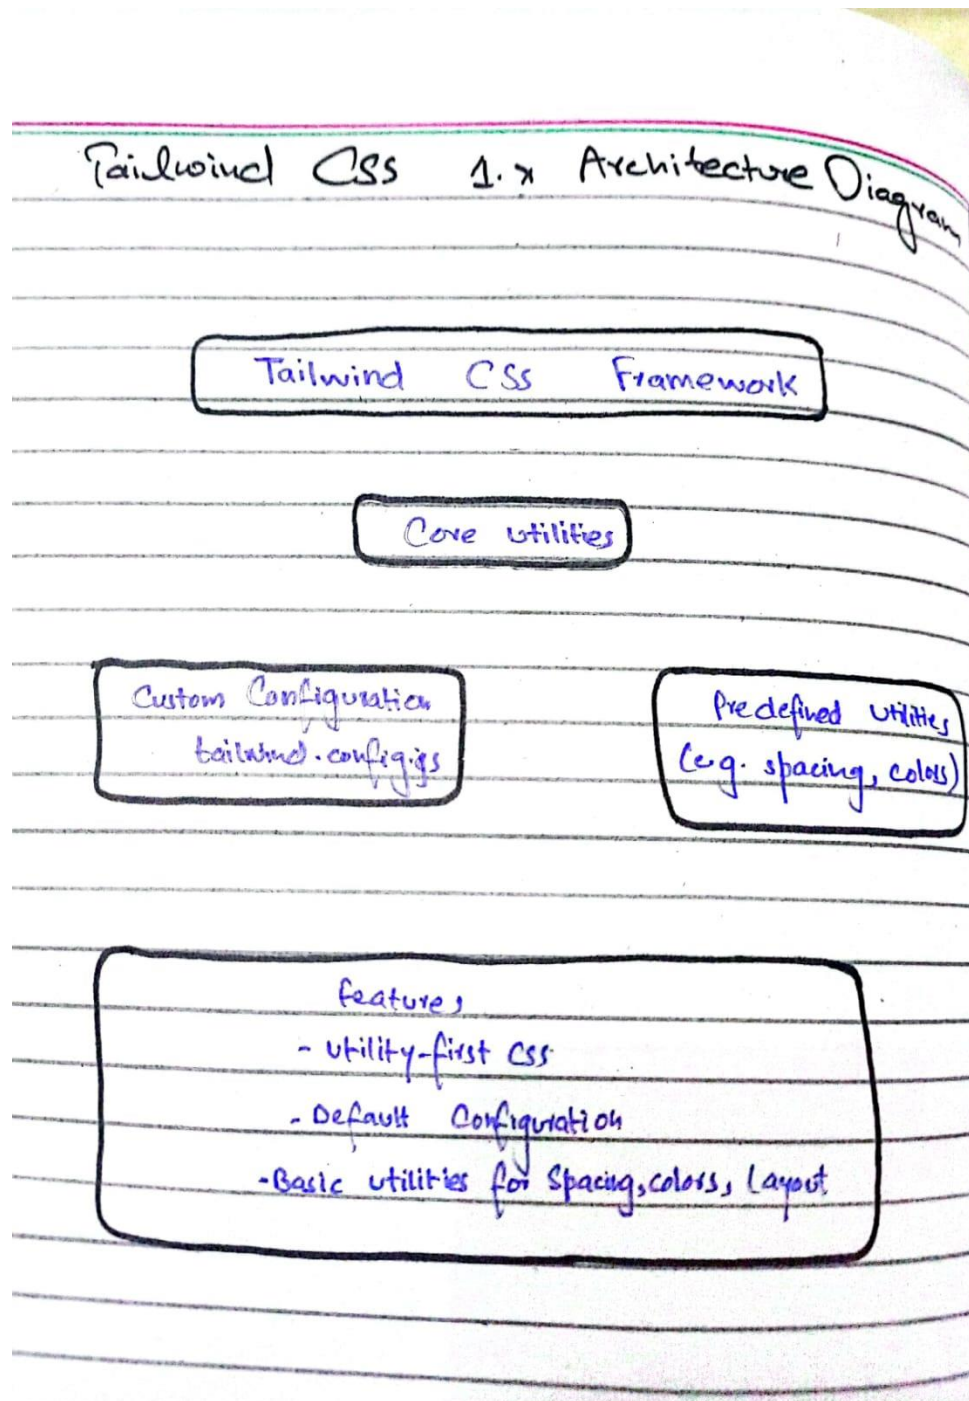 Tailwind CSS 1.x Architecture Diagram
Tailwind CSS Framework
Core utilities
Custom Configuration
tailwind.config.js
Predefined utilities
(e.g. spacing, colors)
features
- utility-first CSS
- Default Configuration
- Basic utilities for Spacing, colors, Layout